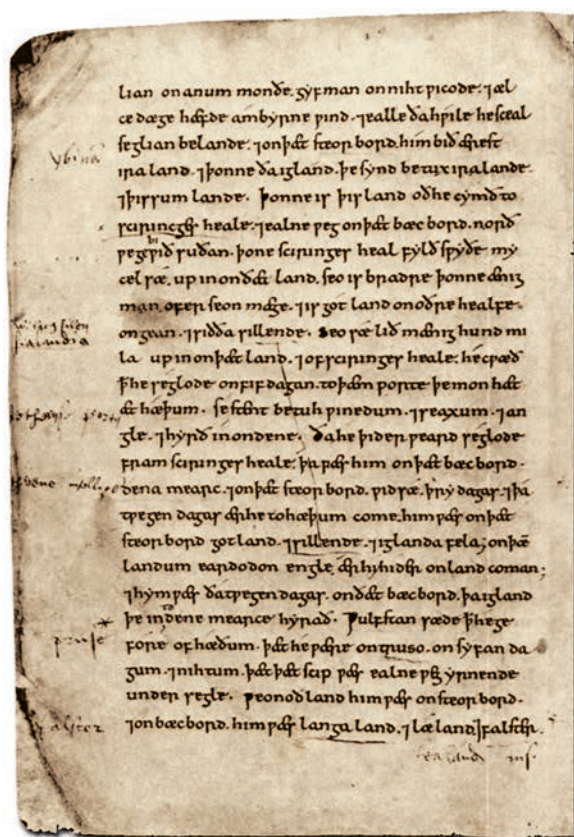 lian on anum monðe. gyf man on niht ƿicode. ⁊ æl
ce dæge hæfde ambyrne ƿind. ⁊ ealle ða hƿile he sceal
seglian be lande. ⁊ on þæt steorbord. him bið ærest
iraland. ⁊ þonne ða igland. þe synd betux iralande
⁊ þissum lande. þonne is þis land oð he cymð to
scirincges heale. ⁊ ealne ƿeg on þæt bæcbord. norð
ƿeg ƿið suðan. þone sciringes heal fylð sƿyðe my
cel sæ. up in on ðæt land. seo is bradre þonne ænig
man. ofer seon mæge. ⁊ is gotland on oðre healfe
ongean. ⁊ siðða sillende. seo sæ lið mænig hund mi
la up in on þæt land. ⁊ of sciringes heale. he cƿæð
ꝥ he seglode on fif dagan. to þæm porte þe mon hæt
æt hæþum. se stent betuh ƿinedum. ⁊ seaxum. ⁊ an
gle. ⁊ hyrð in on dene. ða he þiderƿeard seglode
fram sciringes heale. þa ƿæs him on þæt bæcbord.
dena mearc. ⁊ on þæt steorbord. ƿidsæ. þry dagas. ⁊ þa
tƿegen dagas ær he to hæþum come. him ƿæs on þæt
steorbord gotland. ⁊ sillende. ⁊ iglanda fela; on þæ
landum eardodon engle. ær hi hider on land coman;
⁊ hym ƿæs ða tƿegen dagas. on ðæt bæcbord. þa igland
þe in dene mearce hyrað. Ƿulfstan sæde ꝥ he ge
fore of hæðum. þæt he ƿære on truso. on syfan da
gum. ⁊ nihtum. þæt þæt scip ƿæs ealne ƿeg yrnende
under segle. ƿeonodland him ƿæs on steorbord.
⁊ on bæcbord. him ƿæs langaland. ⁊ læland. ⁊ falster.